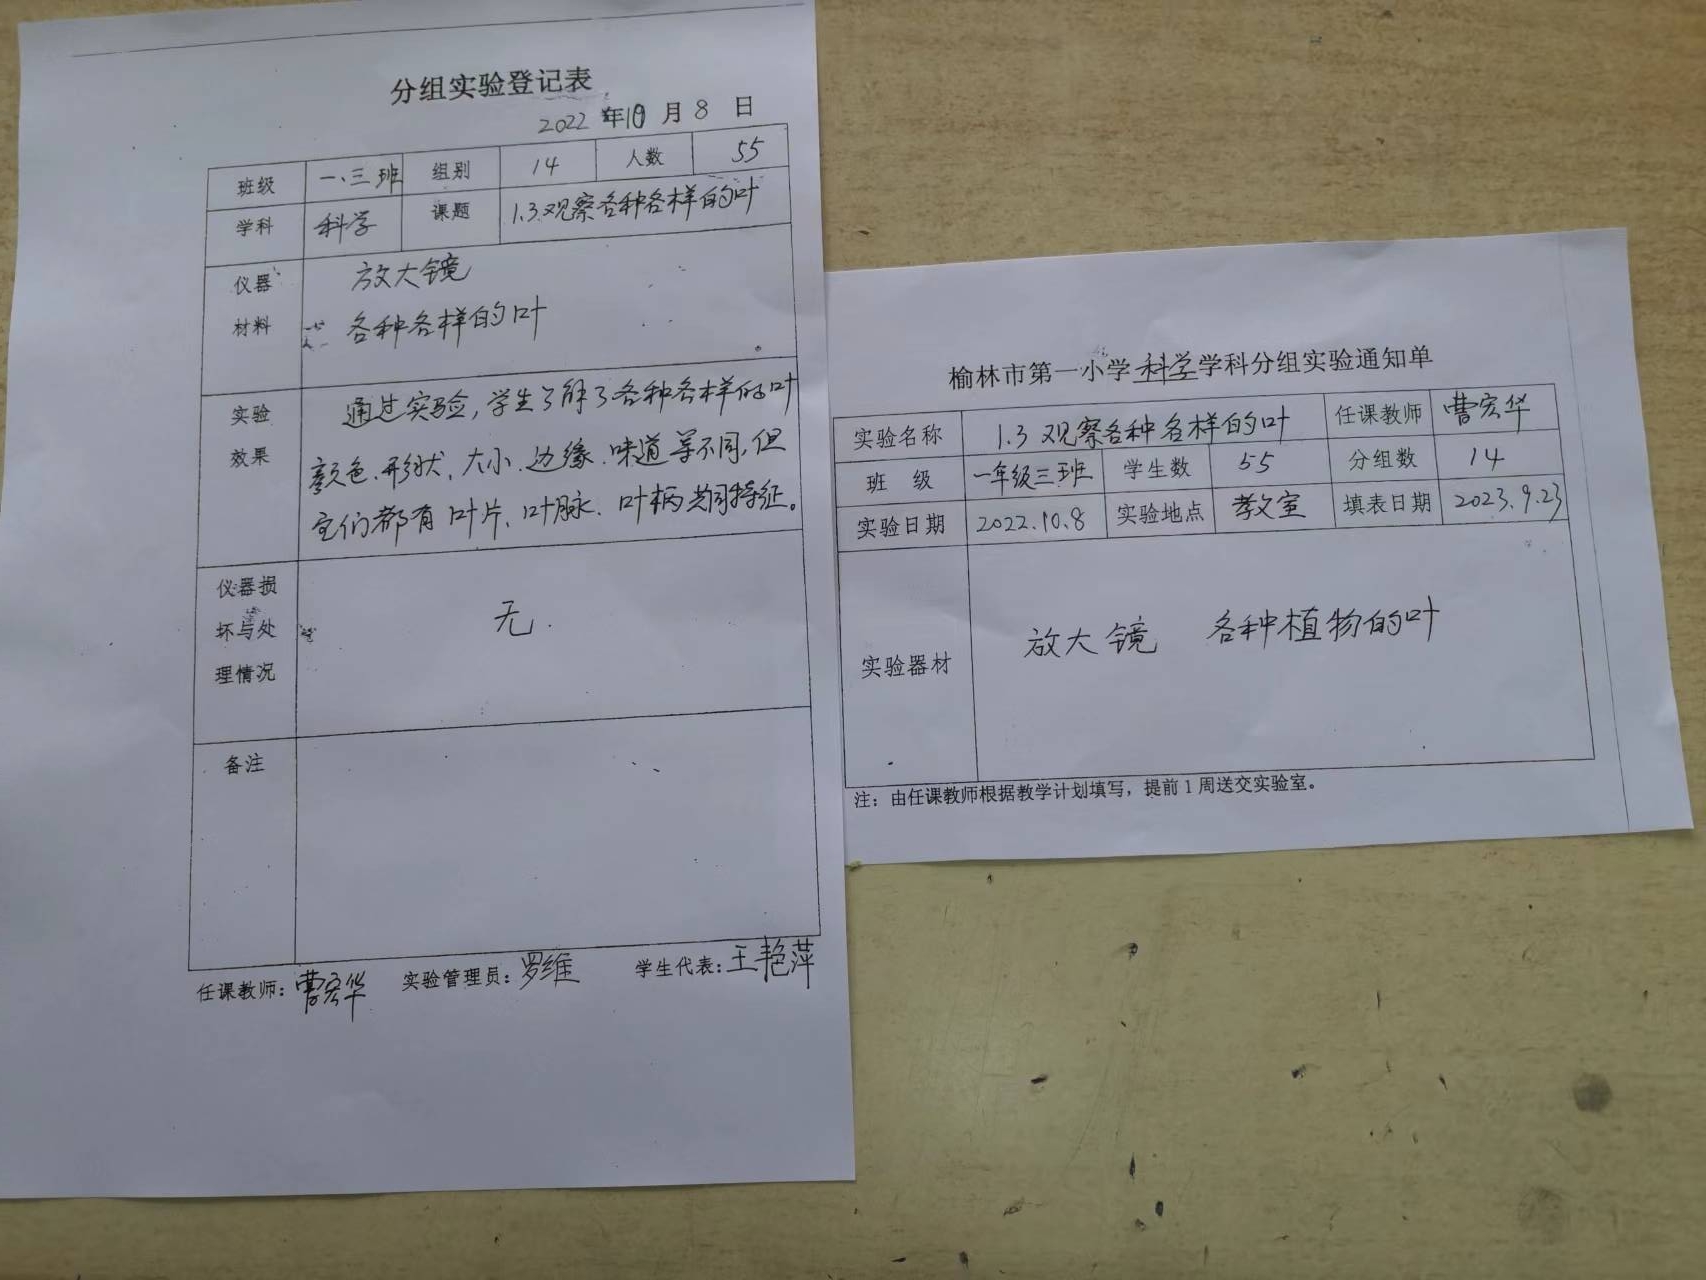 分组实验登记表
2022 年10 月 8 日
班级 一.三班 组别 14 人数 55
学科 科学 课题 1.3观察各种各样的叶
仪器 放大镜
材料 各种各样的叶
实验 通过实验,学生了解了各种各样的叶
效果 颜色.形状.大小.边缘.味道等不同,但
它们都有叶片.叶脉.叶柄共同特征。
仪器损
坏与处 无.
理情况
备注
任课教师: 曹宏华 实验管理员: 罗维 学生代表: 王艳萍
榆林市第一小学科学学科分组实验通知单
实验名称 1.3 观察各种各样的叶 任课教师 曹宏华
班 级 一年级三班 学生数 55 分组数 14
实验日期 2022.10.8 实验地点 教室 填表日期 2023.9.23
实验器材 放大镜 各种植物的叶
注: 由任课教师根据教学计划填写,提前1周送交实验室。